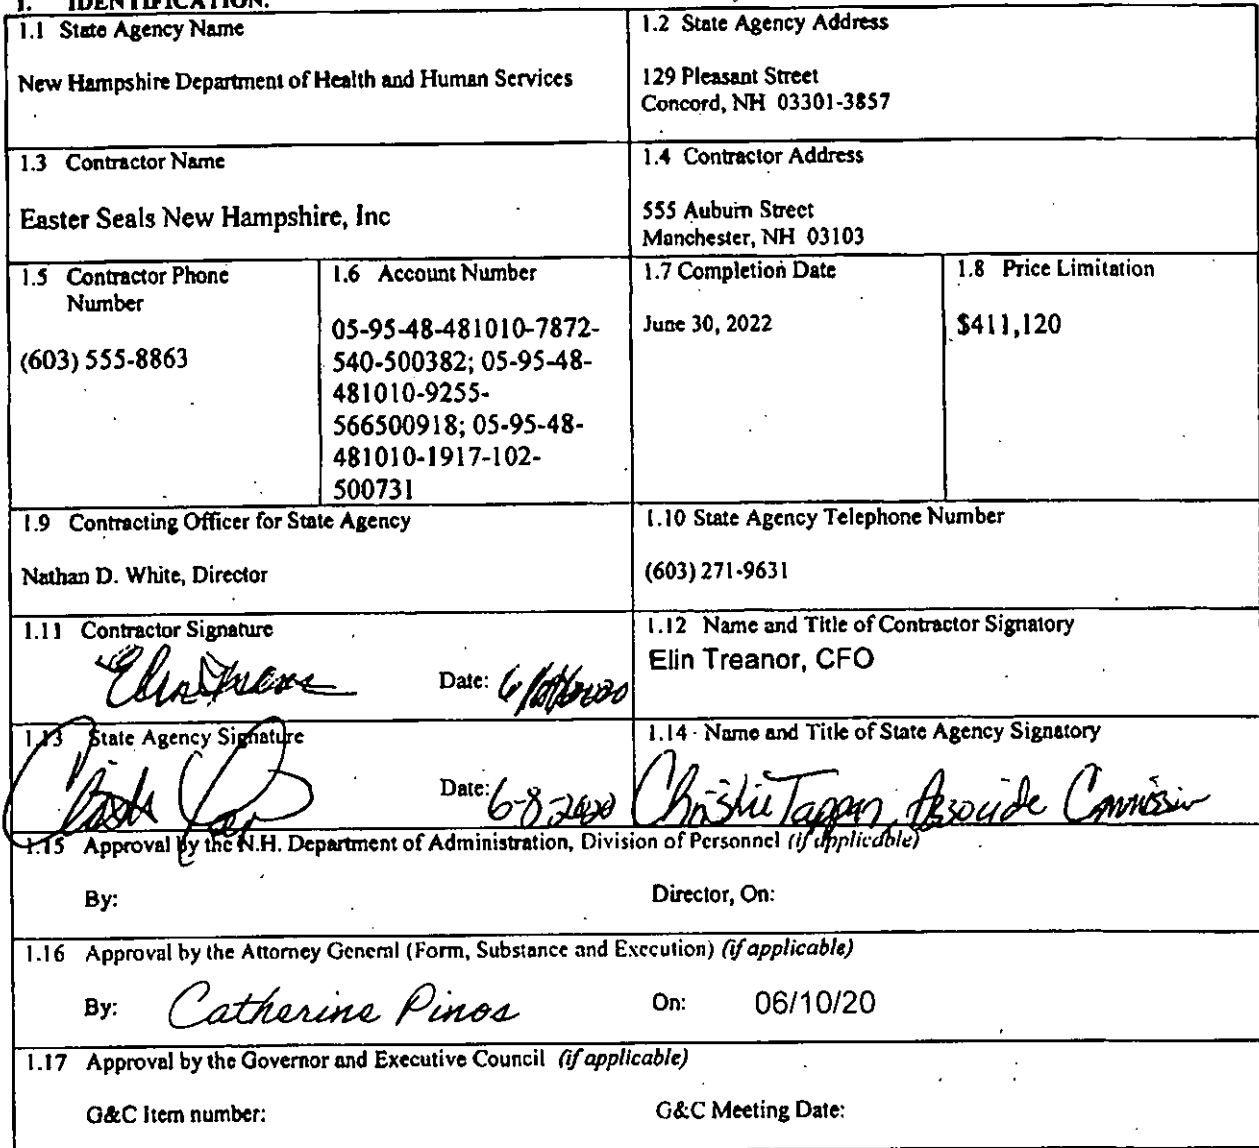 1. IDENTIFICATION.
1.1 State Agency Name
New Hampshire Department of Health and Human Services
1.2 State Agency Address
129 Pleasant Street
Concord, NH 03301-3857
1.3 Contractor Name
Easter Seals New Hampshire, Inc
1.4 Contractor Address
555 Auburn Street
Manchester, NH 03103
1.5 Contractor Phone
Number
(603) 555-8863
1.6 Account Number
05-95-48-481010-7872-
540-500382; 05-95-48-
481010-9255-
566500918; 05-95-48-
481010-1917-102-
500731
1.7 Completion Date
June 30, 2022
1.8 Price Limitation
$411,120
1.9 Contracting Officer for State Agency
Nathan D. White, Director
1.10 State Agency Telephone Number
(603) 271-9631
1.11 Contractor Signature
Date:
1.12 Name and Title of Contractor Signatory
Elin Treanor, CFO
1.13 State Agency Signature
Date: 6-8-2020
1.14 Name and Title of State Agency Signatory
Christie Tappan, Associate
1.15 Approval by the N.H. Department of Administration, Division of Personnel (if applicable)
By: Director, On:
1.16 Approval by the Attorney General (Form, Substance and Execution) (if applicable)
By: Catherine Pinos On: 06/10/20
1.17 Approval by the Governor and Executive Council (if applicable)
G&C Item number: G&C Meeting Date: